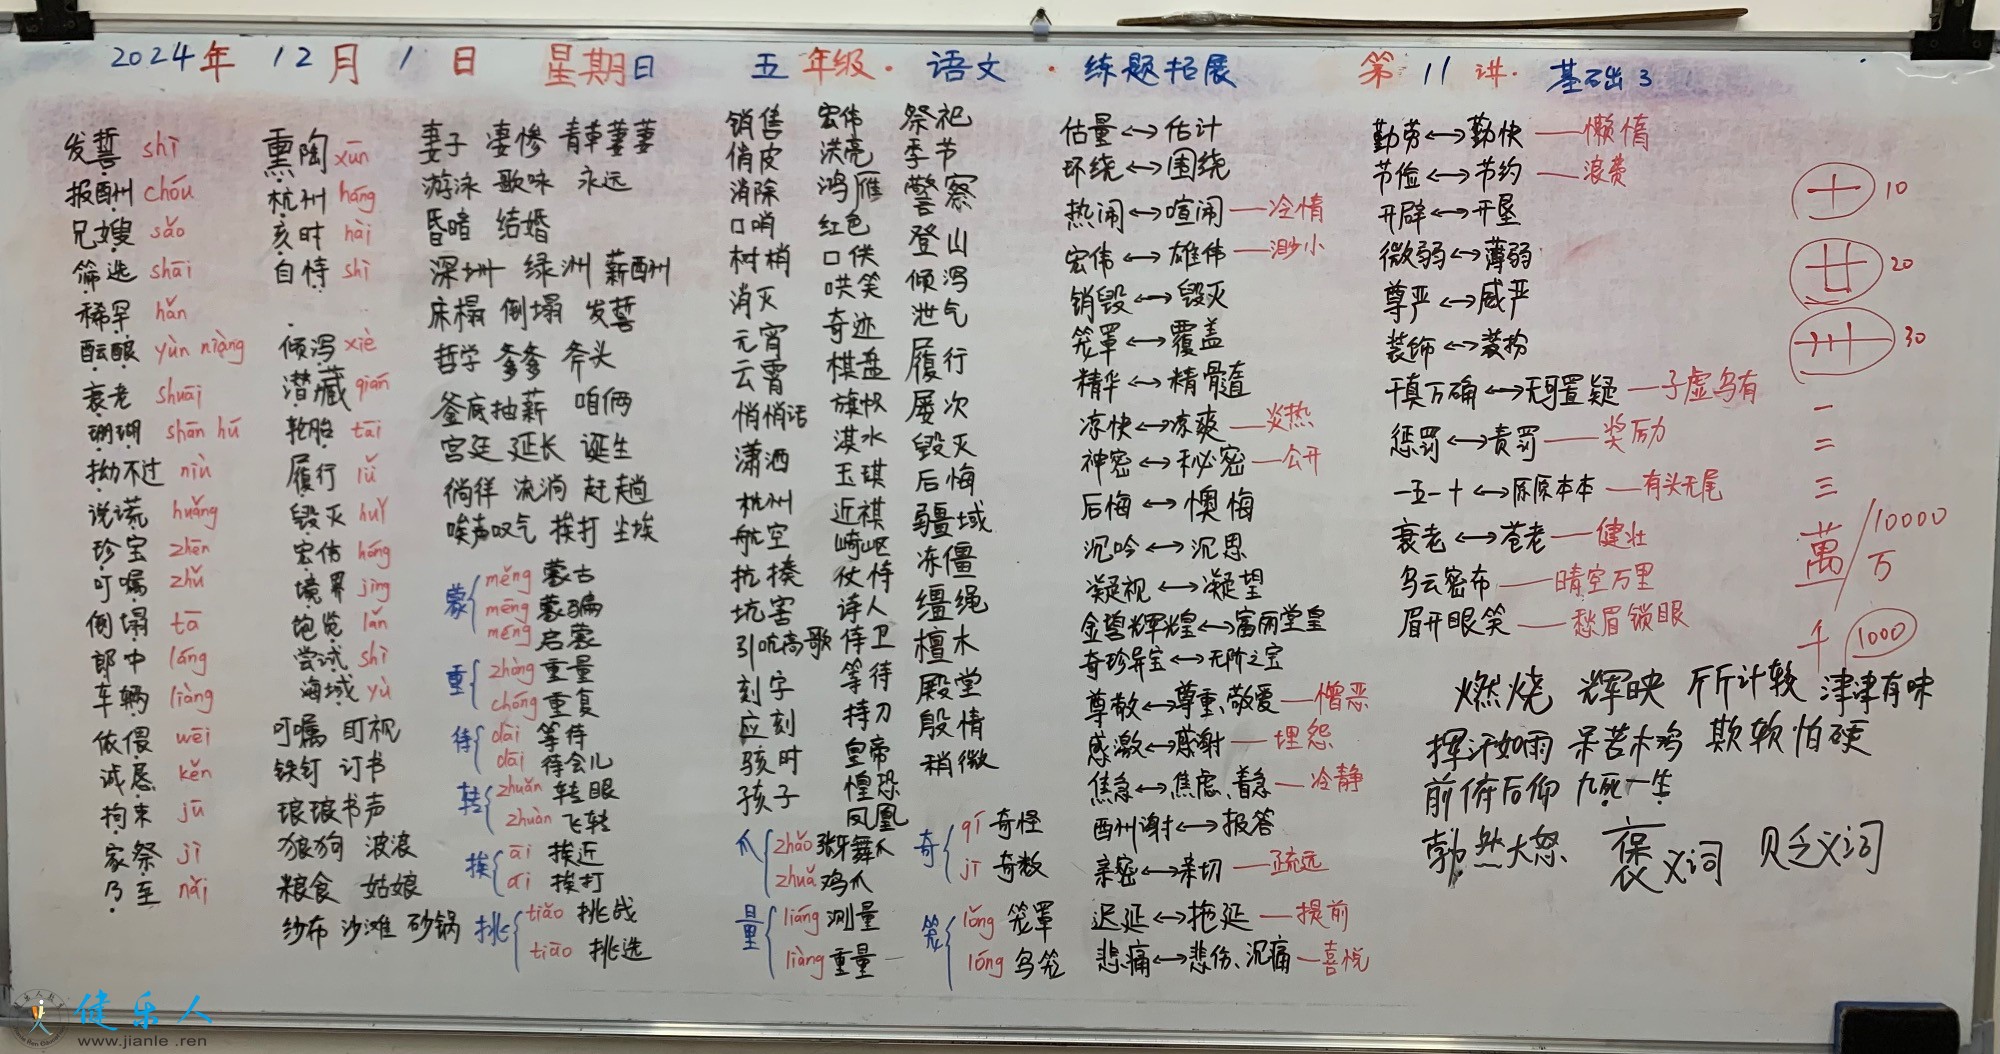 2024年 12月1日 星期日 五年级·语文·练题拓展 第11讲·基础3
发誓 shì
报酬 chóu
兄嫂 sǎo
筛选 shāi
稀罕 hǎn
酝酿 yùn niàng
衰老 shuāi
珊瑚 shān hú
拗不过 niù
说谎 huǎng
珍宝 zhēn
叮嘱 zhǔ
倒塌 tā
郎中 láng
车辆 liàng
依偎 wēi
诚恳 kěn
拘束 jū
家祭 jì
乃至 nǎi
熏陶 xūn
杭州 háng
亥时 hài
自恃 shì
倾泻 xiè
潜藏 qián
轮胎 tāi
履行 lǚ
毁灭 huǐ
宏伟 hóng
境界 jìng
饱览 lǎn
尝试 shì
海域 yù
叮嘱 盯视
铁钉 订书
琅琅书声
狼狗 波浪
粮食 姑娘
纱布 沙滩 砂锅
妻子 凄惨 青草萋萋
游泳 歌咏 永远
昏暗 结婚
深圳 绿洲 薪酬
床榻 倒塌 发誓
哲学 爹爹 斧头
釜底抽薪 咱俩
宫廷 延长 诞生
徜徉 流淌 赶趟
唉声叹气 挨打 尘埃
蒙 měng 蒙古
mēng 蒙骗
méng 启蒙
重 zhòng 重量
chóng 重复
待 dài 等待
dāi 待会儿
转 zhuǎn 转眼
zhuàn 飞转
挨 āi 挨近
ái 挨打
挑 tiǎo 挑战
tiāo 挑选
销售
俏皮
消除
口哨
树梢
消灭
元宵
云霄
悄悄话
潇洒
杭州
航空
抗揍
坑害
引吭高歌
刻字
应刻
骇时
孩子
爪 zhǎo 张牙舞爪
zhuǎ 鸡爪
量 liáng 测量
liàng 重量
宏伟
洪亮
鸿雁
红色
口供
哄笑
奇迹
棋盘
旗帜
淇水
玉琪
近祺
崎岖
仗恃
诗人
侍卫
等待
持刀
皇帝
惶恐
凤凰
祭祀
季节
警察
登山
倾泻
泄气
履行
屡次
毁灭
后悔
疆域
冻僵
缰绳
檀木
殿堂
殷情
稍微
奇 qí 奇怪
jī 奇数
笼 lǒng 笼罩
lóng 鸟笼
估量↔估计
环绕↔围绕
热闹↔喧闹—冷清
宏伟↔雄伟—渺小
销毁↔毁灭
笼罩↔覆盖
精华↔精髓
凉快↔凉爽—炎热
神密↔秘密—公开
后悔↔懊悔
沉吟↔沉思
凝视↔凝望
金碧辉煌↔富丽堂皇
奇珍异宝↔无价之宝
尊敬↔尊重、敬爱—憎恶
感激↔感谢—埋怨
焦急↔焦虑、着急—冷静
酬谢↔报答
亲密↔亲切—疏远
迟延↔拖延—提前
悲痛↔悲伤、沉痛—喜悦
勤劳↔勤快—懒惰
节俭↔节约—浪费
开辟↔开垦
微弱↔薄弱
尊严↔威严
装饰↔装扮
千真万确↔无可置疑—子虚乌有
惩罚↔责罚—奖励
一五一十↔原原本本—有头无尾
衰老↔苍老—健壮
乌云密布—晴空万里
眉开眼笑—愁眉锁眼
十 10
廿 20
卅 30
一
二
三
萬/10000
万
千 1000
燃烧 辉映 斤斤计较 津津有味
挥汗如雨 呆若木鸡 欺软怕硬
前俯后仰 九死一生
勃然大怒 褒义词 贬义词
健乐人
www.jianle.ren